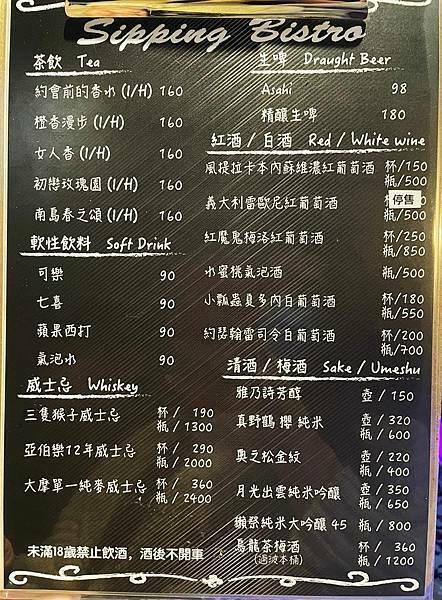 Sipping Bistro
茶飲 Tea
約會前的香水 (I/H) 160
橙香漫步 (I/H) 160
女人香 (I/H) 160
初戀玫瑰園 (I/H) 160
南島春之頌 (I/H) 160
軟性飲料 Soft Drink
可樂 90
七喜 90
蘋果西打 90
氣泡水 90
威士忌 Whiskey
三隻猴子威士忌 杯 / 190
瓶 / 1300
亞伯樂12年威士忌 杯 / 290
瓶 / 2000
大摩單一純麥威士忌 杯 / 360
瓶 / 2400
未滿18歲禁止飲酒，酒後不開車
生啤 Draught Beer
Asahi 98
精釀生啤 180
紅酒 / 白酒 Red / White wine
風提拉卡本內蘇維濃紅葡萄酒 杯/150
瓶/500
義大利雷歐尼紅葡萄酒 停售
紅魔鬼梅洛紅葡萄酒 杯/250
瓶/850
水蜜桃氣泡酒 瓶/500
小瓢蟲夏多內白葡萄酒 杯/180
瓶/550
約瑟翰雷司令白葡萄酒 杯/200
瓶/700
清酒 / 梅酒 Sake / Umeshu
雅乃詩芳醇 壺 / 150
真野鶴 櫻 純米 壺 / 320
瓶 / 600
奧之松金紋 壺 / 220
瓶 / 400
月光出雲純米吟釀 壺 / 350
瓶 / 650
獺祭純米大吟釀 45 瓶 / 800
烏龍茶梅酒 杯 / 360
瓶 / 1200